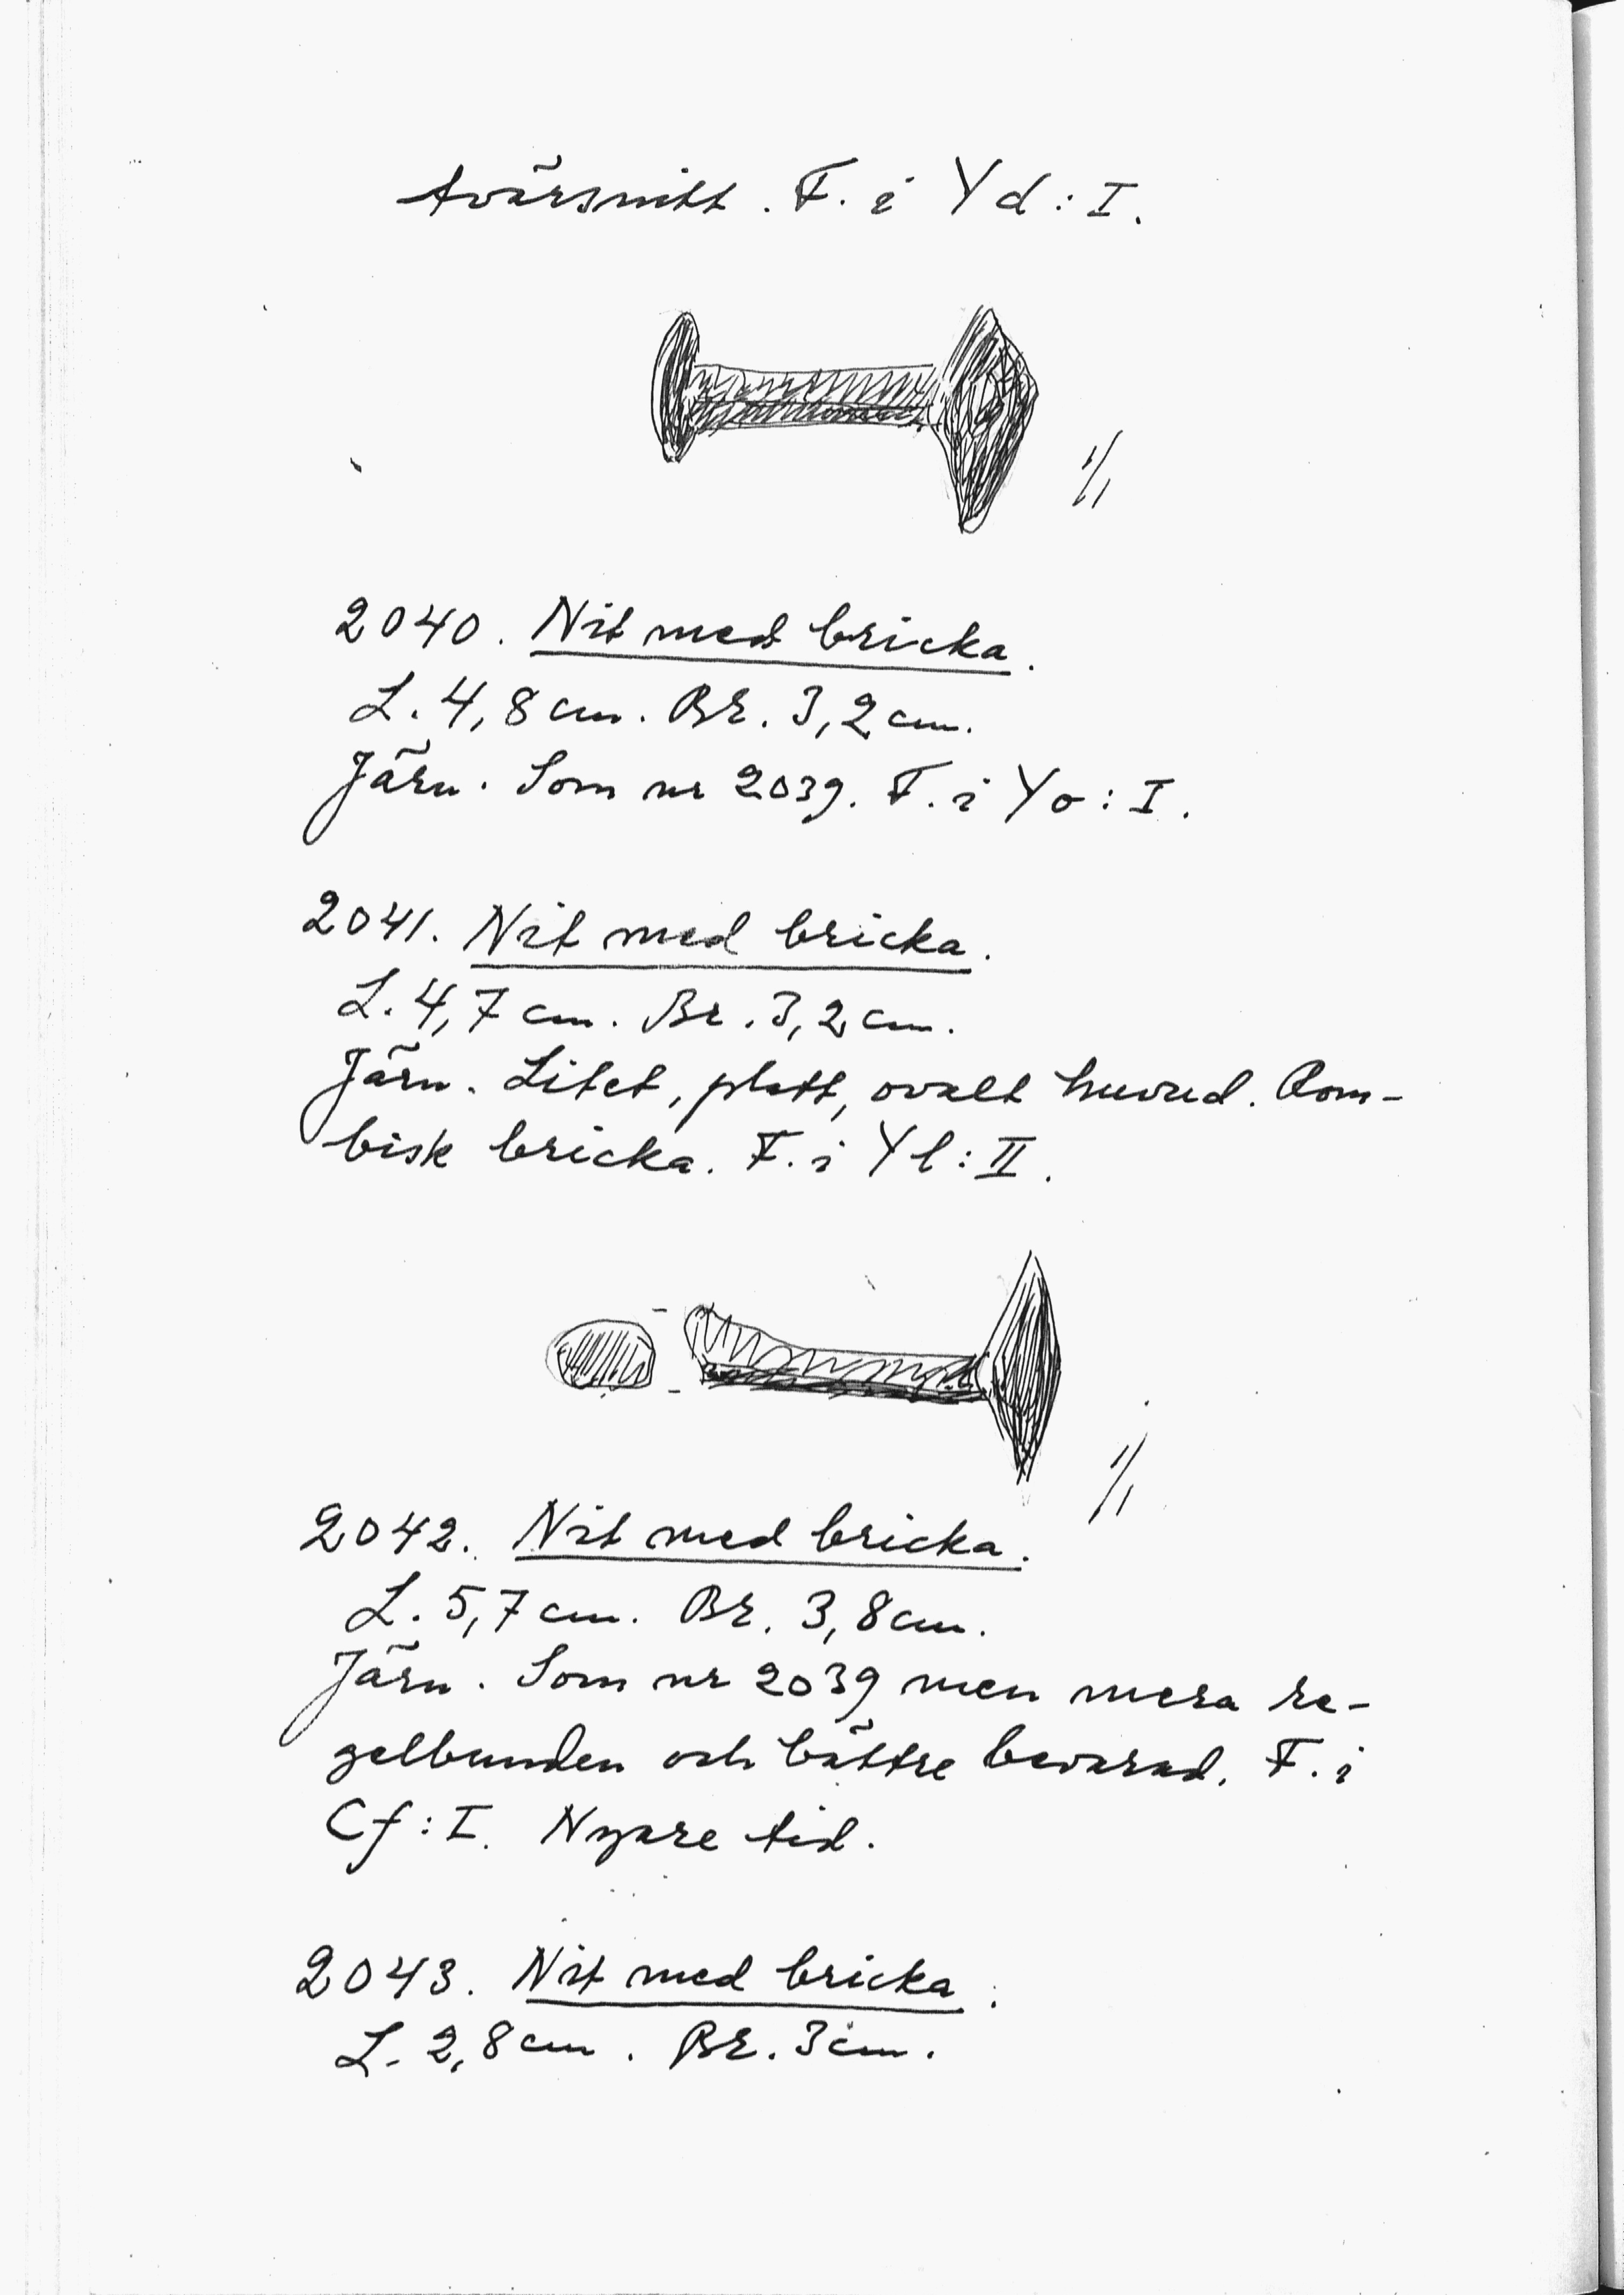 tvärsnitt. F. i Yd:I.
1/1
2040. Nit med bricka.
L. 4,8 cm. Br. 3,2 cm.
Järn. Som nr 2039. F. i Yo:I.
2041. Nit med bricka.
L. 4,7 cm. Br. 3,2 cm.
Järn. Litet, platt, ovalt huvud. Rom-
bisk bricka. F. i Yl:II.
1/1
2042. Nit med bricka.
L. 5,7 cm. Br. 3,8 cm.
Järn. Som nr 2039 men mera re-
gelbunden och bättre bevarad. F. i
Cf:I. Nyare tid.
2043. Nit med bricka.
L. 2,8 cm. Br. 3 cm.